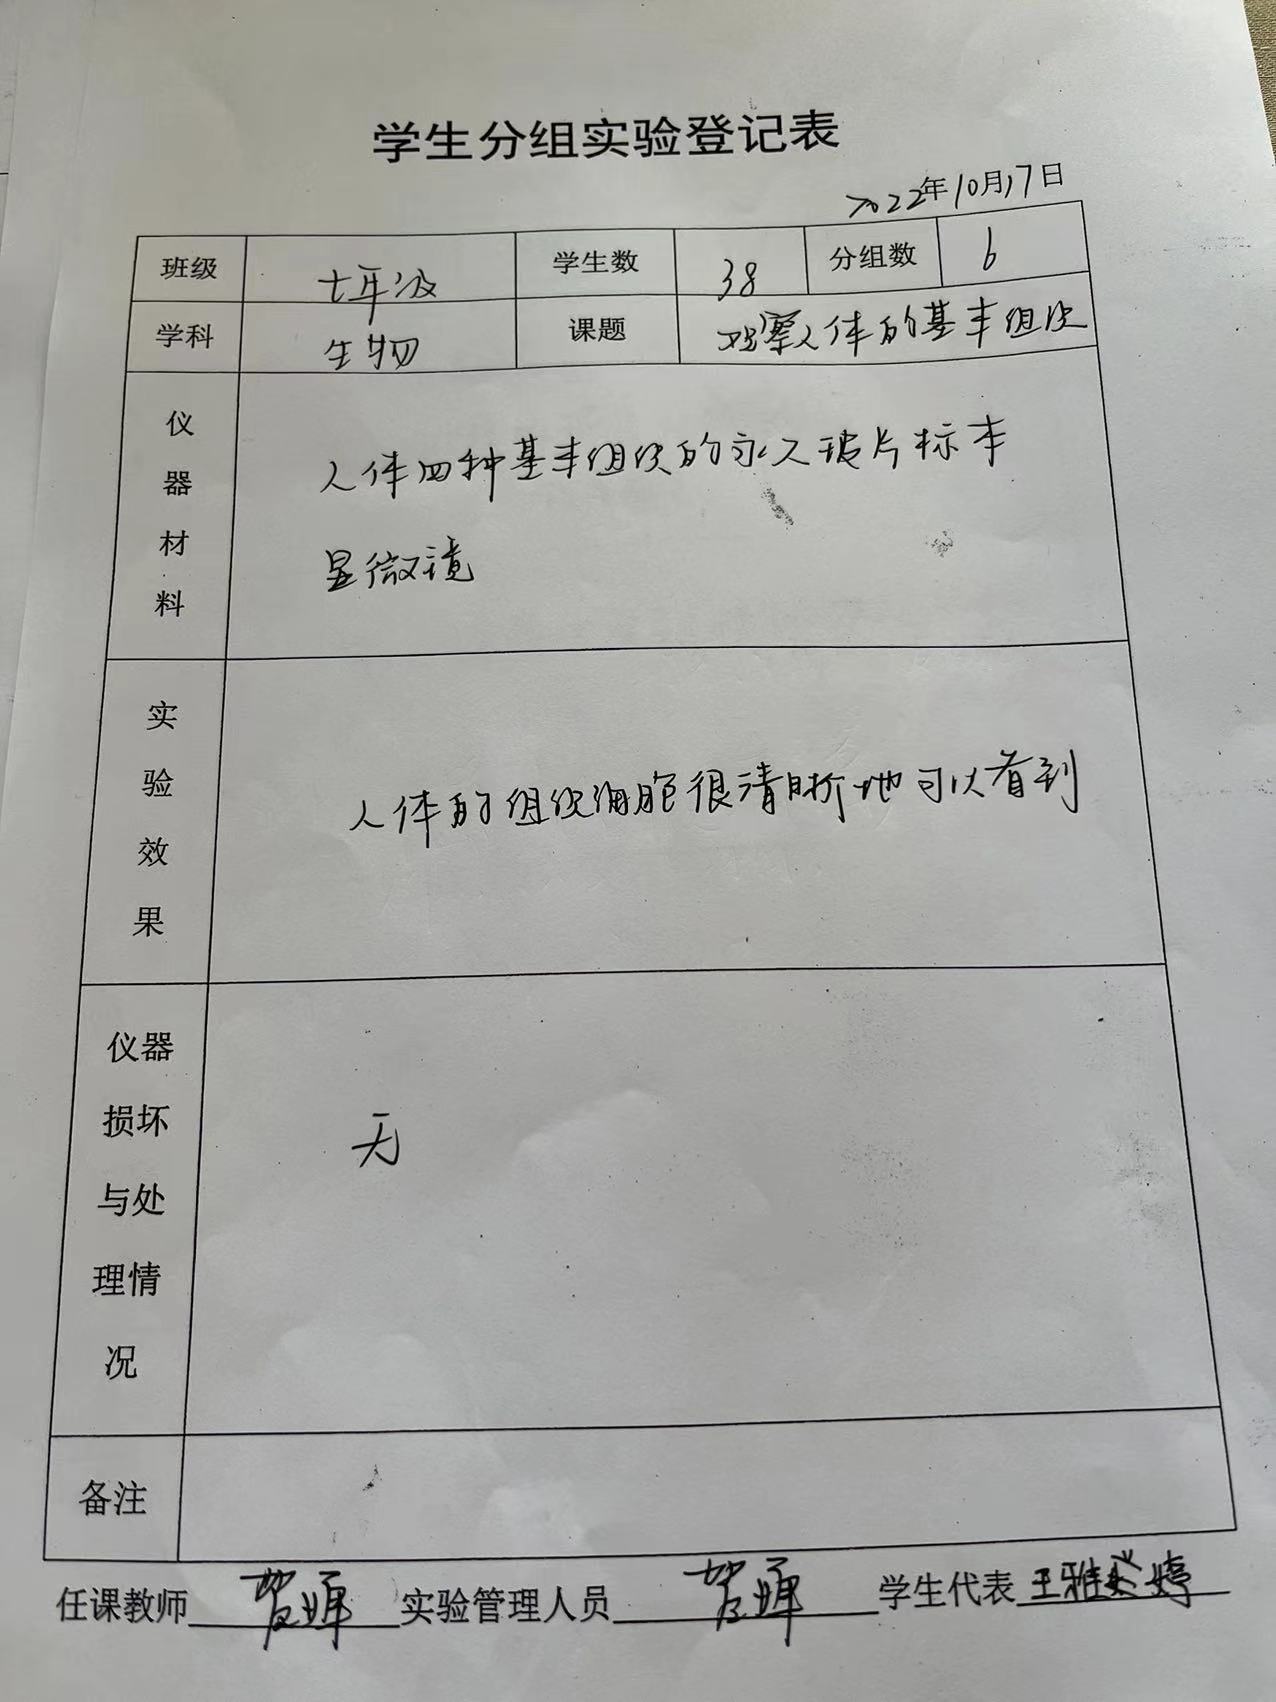 学生分组实验登记表
2022年10月17日
班级 七年级 学生数 38 分组数 6
学科 生物 课题 观察人体的基本组织
仪器材料 人体四种基本组织的永久玻片标本
显微镜
实验效果 人体的组织细胞很清晰地可以看到
仪器损坏与处理情况 无
备注
任课教师 实验管理人员 学生代表 王雅婷